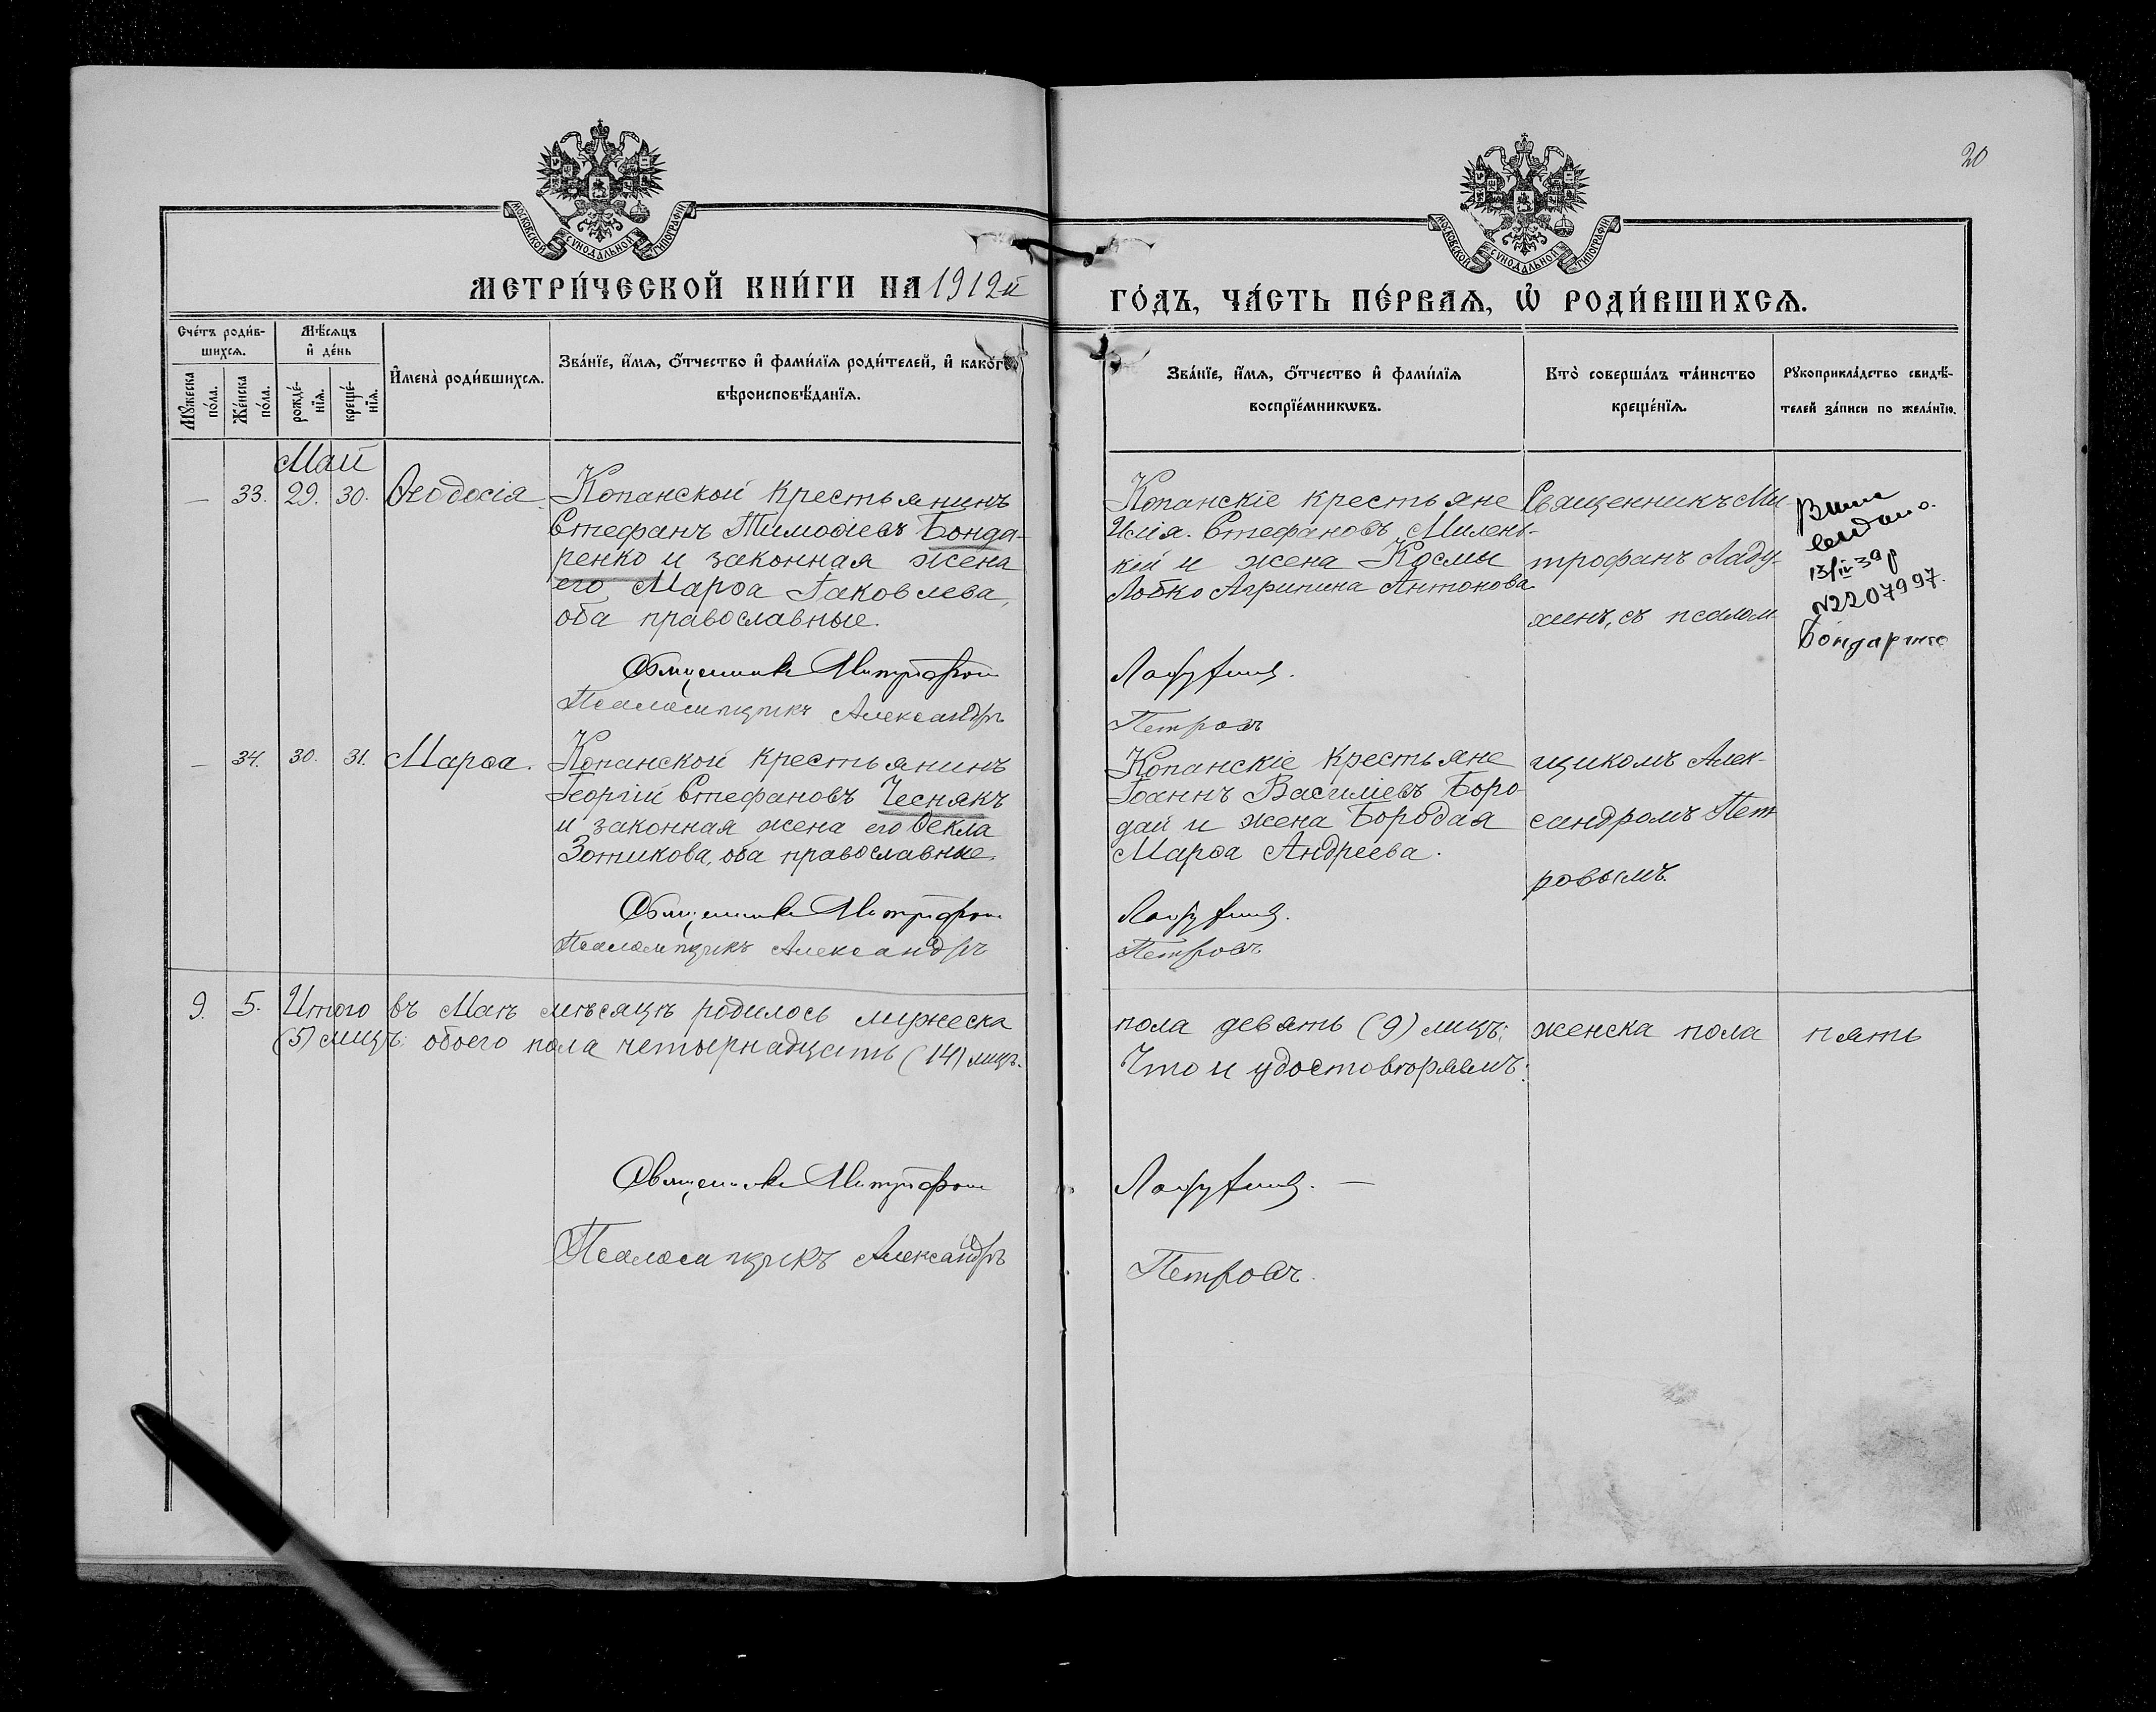 20
МОСКОВСКОЙ СУНОДАЛЬНОЙ ТИПОГРАФІИ
МОСКОВСКОЙ СУНОДАЛЬНОЙ ТИПОГРАФІИ
МЕТРИ́ЧЕСКОЙ КНИ́ГИ НА 1912й
ГО́ДЪ, ЧА́СТЬ ПЕ́РВАѦ, Ѡ҆ РОДИ́ВШИХСѦ.
Сче́тъ роди́в-
шихсѧ.
Мѣ́сѧцъ
и҆ де́нь
Мꙋ́жеска
по́ла.
Же́нска
по́ла.
рожде́-
нїѧ.
креще́-
нїѧ.
И҆мена̀ роди́вшихсѧ.
Зва́нїе, и҆́мѧ, ѻ҆́тчество и҆ фами́лїѧ роди́телей, и҆ како́гѡ
вѣроисповѣ́данїѧ.
Зва́нїе, и҆́мѧ, ѻ҆́тчество и҆ фами́лїѧ
воспрїе́мникѡвъ.
Кто̀ соверша́лъ та́инство
креще́нїѧ.
Рꙋкоприкла́дство свидѣ́-
телей за́писи по жела́нїю.
Май
— 33. 29. 30. Ѳеодосія.
Копанской крестьянинъ
Стефанъ Тимоѳіевъ Бонда-
ренко и законная жена
его Марѳа Іаковлева,
оба православные.
Священникъ Митрофан
Псаломщикъ Александръ
Копанскіе крестьяне
Илія Стефановъ Милень-
кій и жена Космы
Лобко Агрипина Антонова
Ладухинъ.
Петровъ
Священникъ Ми-
трофанъ Ладу-
хинъ, съ псалом-
13/IV-39 р
№2207997.
Бондаренко
— 34. 30. 31. Марѳа.
Копанской крестьянинъ
Георгій Стефановъ Чеснякъ
и законная жена его Ѳекла
Зотикова, оба православные.
Священникъ Митрофан
Псаломщикъ Александръ
Копанскіе крестьяне
Іоаннъ Василіевъ Боро-
дай и жена Бородая
Марѳа Андреева.
Ладухинъ.
Петровъ
щикомъ Алек-
сандромъ Пет-
ровымъ.
9. 5. Итого въ Маѣ мѣсяцѣ родилось мужеска
пола девять (9) лицъ; женска пола пять
(5) лицъ: обоего пола четырнадцать (14) лицъ.
Что и удостовѣряемъ:
Священникъ Митрофан
Ладухинъ. —
Псаломщикъ Александръ
Петровъ.